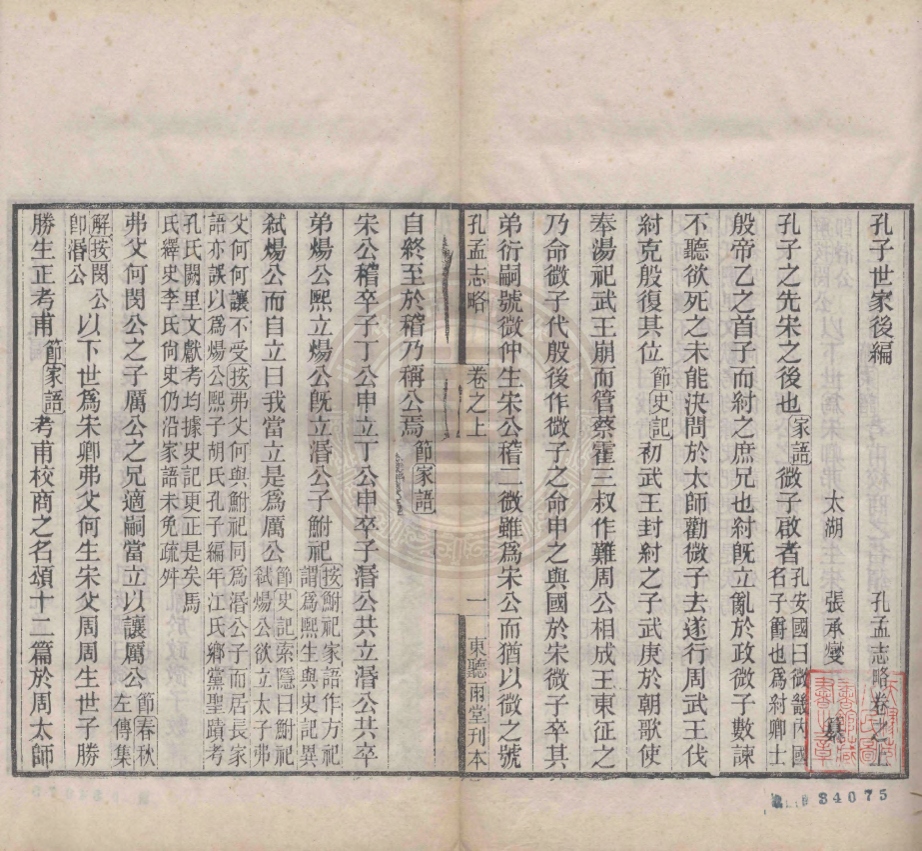 孔子世家後編　孔孟志略卷之上
太湖　張承燮　纂
孔子之先宋之後也家語微子啟者孔安國曰微畿內國名子爵也為紂卿士
殷帝乙之首子而紂之庶兄也紂旣立亂於政微子數諫
不聽欲死之未能決問於太師勸微子去遂行周武王伐
紂克殷復其位節史記初武王封紂之子武庚於朝歌使
奉湯祀武王崩而管蔡霍三叔作難周公相成王東征之
乃命微子代殷後作微子之命申之與國於宋微子卒其
弟衍嗣號微仲生宋公稽二微雖爲宋公而猶以微之號
孔孟志略　卷之上　一　東聽雨堂刊本
自終至於稽乃稱公焉節家語
宋公稽卒子丁公申立丁公申卒子湣公共立湣公共卒
弟煬公熙立煬公旣立湣公子鮒祀按鮒祀家語作方祀謂爲熙生與史記異
弒煬公而自立曰我當立是爲厲公節史記索隱曰鮒祀弒煬公欲立太子弗
父何何讓不受按弗父何與鮒祀同爲湣公子而居長家
語亦誤以爲煬公熙子胡氏孔子編年江氏鄉黨聖蹟考
孔氏闕里文獻考均據史記更正是矣馬
氏繹史李氏尙史仍沿家語未免疏舛
弗父何閔公之子厲公之兄適嗣當立以讓厲公節春秋左傳集
解按閔公卽湣公以下世爲宋卿弗父何生宋父周周生世子勝
勝生正考甫節家語考甫校商之名頌十二篇於周太師
34075